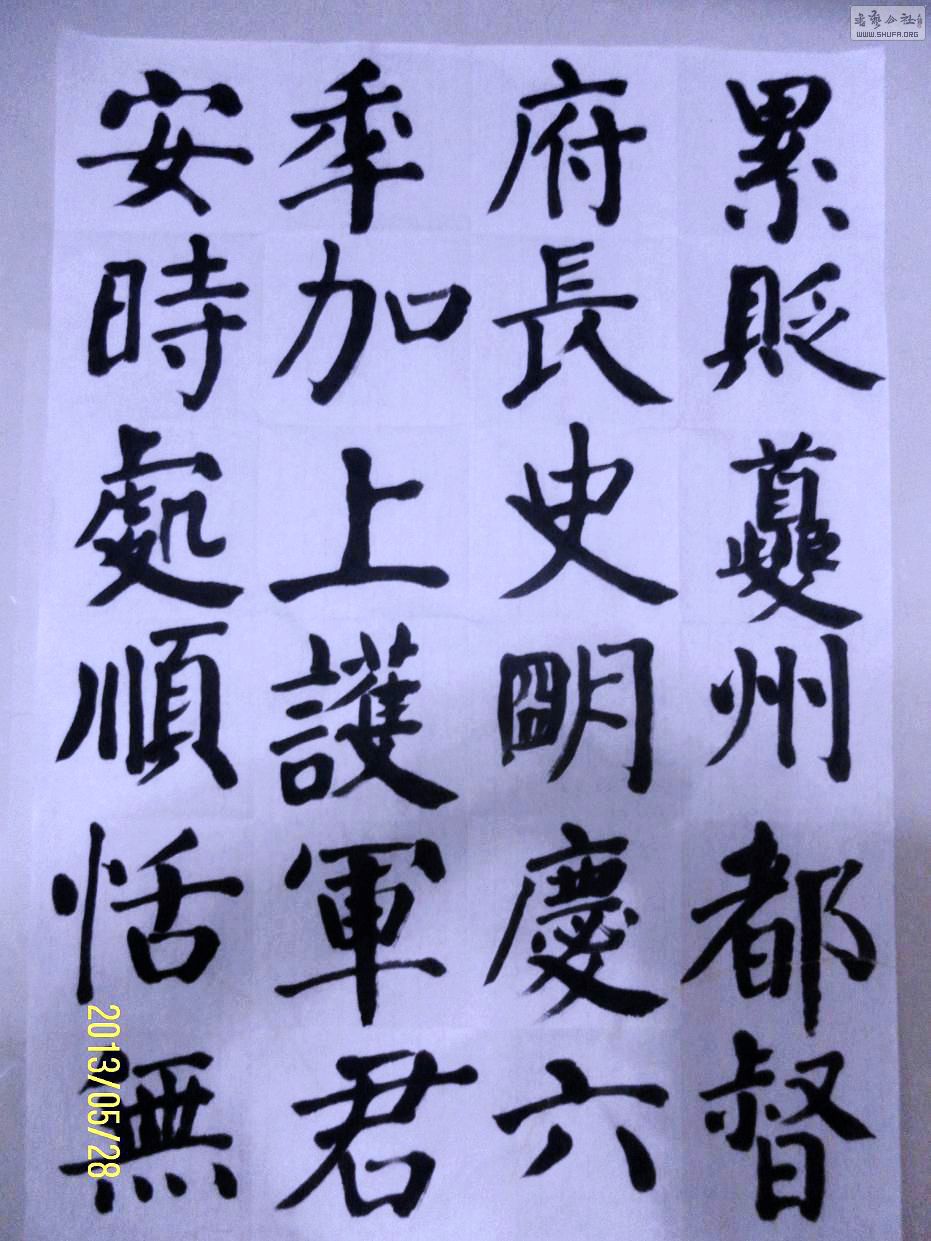 累貶夔州都督
府長史明慶六
年加上護軍君
安時處順恬無
2013/05/28
書藝公社
WWW.SHUFA.ORG